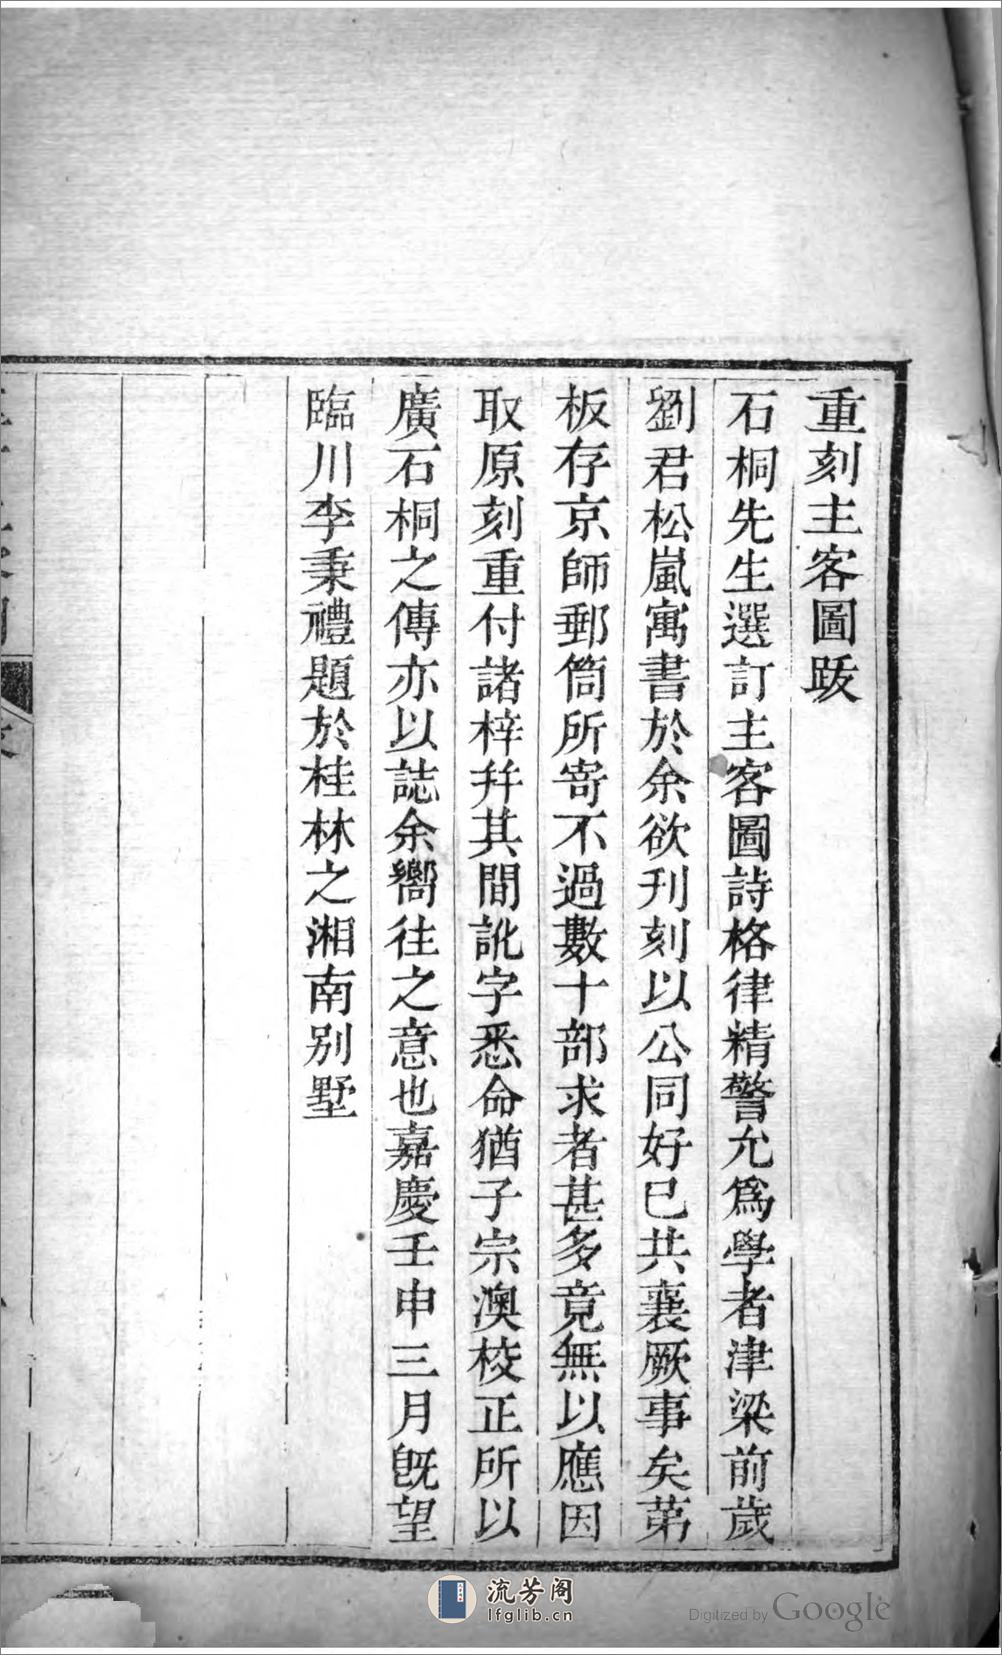 重刻主客圖跋
石桐先生選訂主客圖詩格律精警允為學者津梁前歲
劉君松嵐寓書於余欲刊刻以公同好已共襄厥事矣第
板存京師郵筒所寄不過數十部求者甚多竟無以應因
取原刻重付諸梓幷其間訛字悉命猶子宗澳校正所以
廣石桐之傳亦以誌余嚮往之意也嘉慶壬申三月旣望
臨川李秉禮題於桂林之湘南別墅
流芳阁
lfglib.cn
Digitized by Google